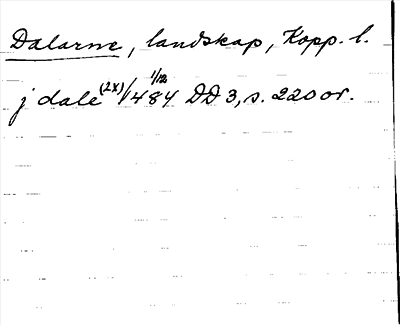 Dalarne, landskap, Kopp. l.
j dale (2x) 1/12 1484 DD 3, s. 220 or.